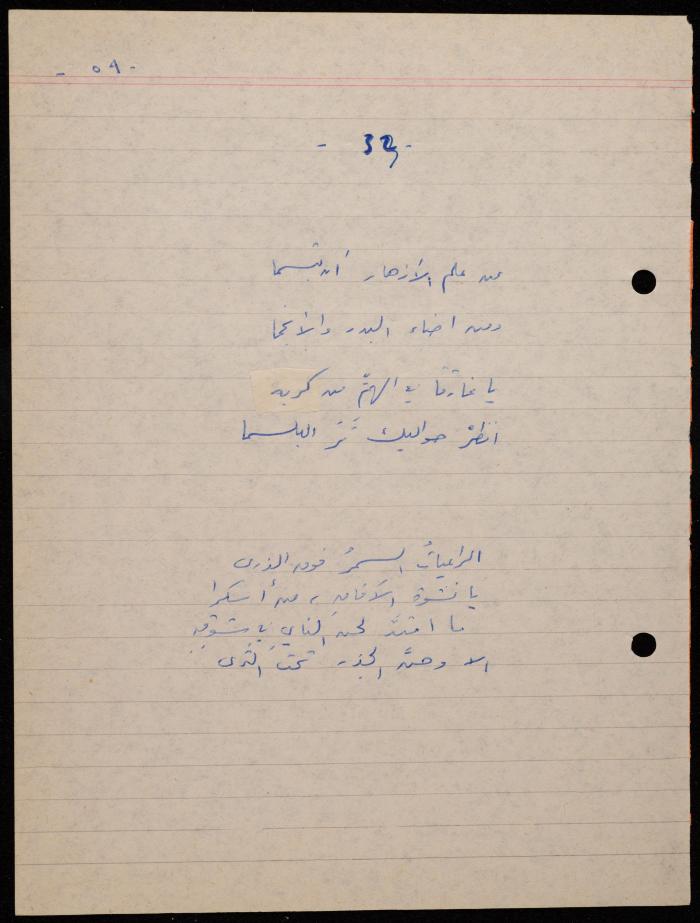 - ٥٩ -
- 32 -
من علم الازهار أن تبسما
ومن اضاء البدر والانجما
يا غارقا في الهمّ من كربه
انظرْ حواليك تَرَ البلسما
الراعياتُ السمرُ فوق الذرى
يا نشوة الآفاق، من أسكرا
ما امتدَّ لحن الناي في شوقه
الا وحنَّ الجذر تحت الثرى